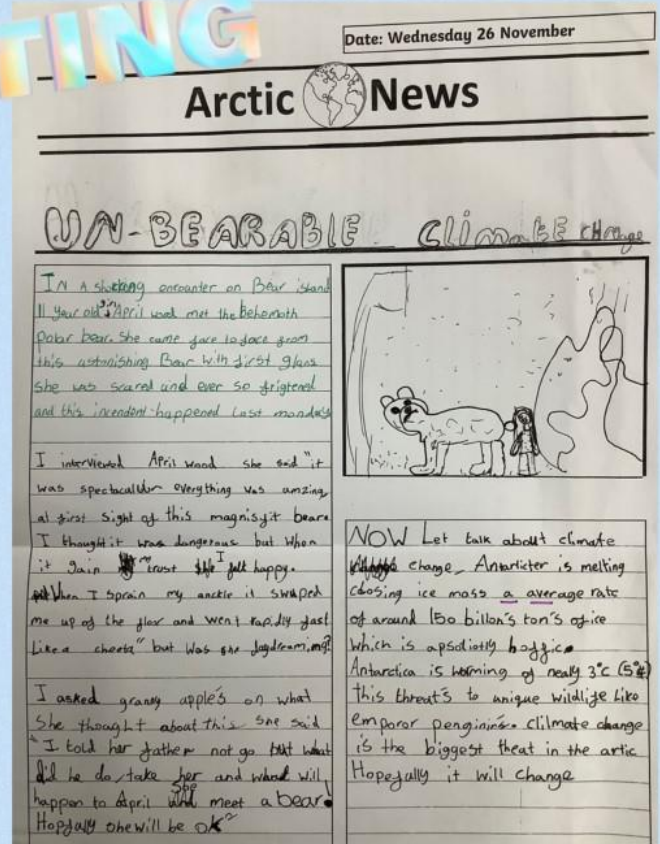 TING
Date: Wednesday 26 November
Arctic News
UN-BEARABLE CLimaTE change
IN A shocking encounter on Bear island
11 year old April wood met the behemoth
polar bear. She came face to face from
this astonishing Bear with first glans
she was scared and ever so frigtened
and this incendent happened Last monday
I interviewed April wood she said "it
was spectacular everything was amzing
at first sight of this magnisfit beare
I thought it was dangerous but when
it gain my trust I felt happy.
When I sprain my anckle it swuped
me up of the flor and went rapidly fast
Like a cheeta" but was she daydreaming?
I asked granny apple's on what
She thought about this she said
"I told her father not go but what
did he do, take her and what will
happen to April she meet a bear!
Hopfully she will be ok"
NOW Let talk about climate
change. Antarlicter is melting
closing ice mass a average rate
of around 150 billon's ton's of ice
which is apsoliotly hoffic.
Antarctica is worming of nealy 3°c (5°f)
this threat's to unique wildlife Like
emporor penginins. clilmate change
is the biggest theat in the artic
Hopefully it will change